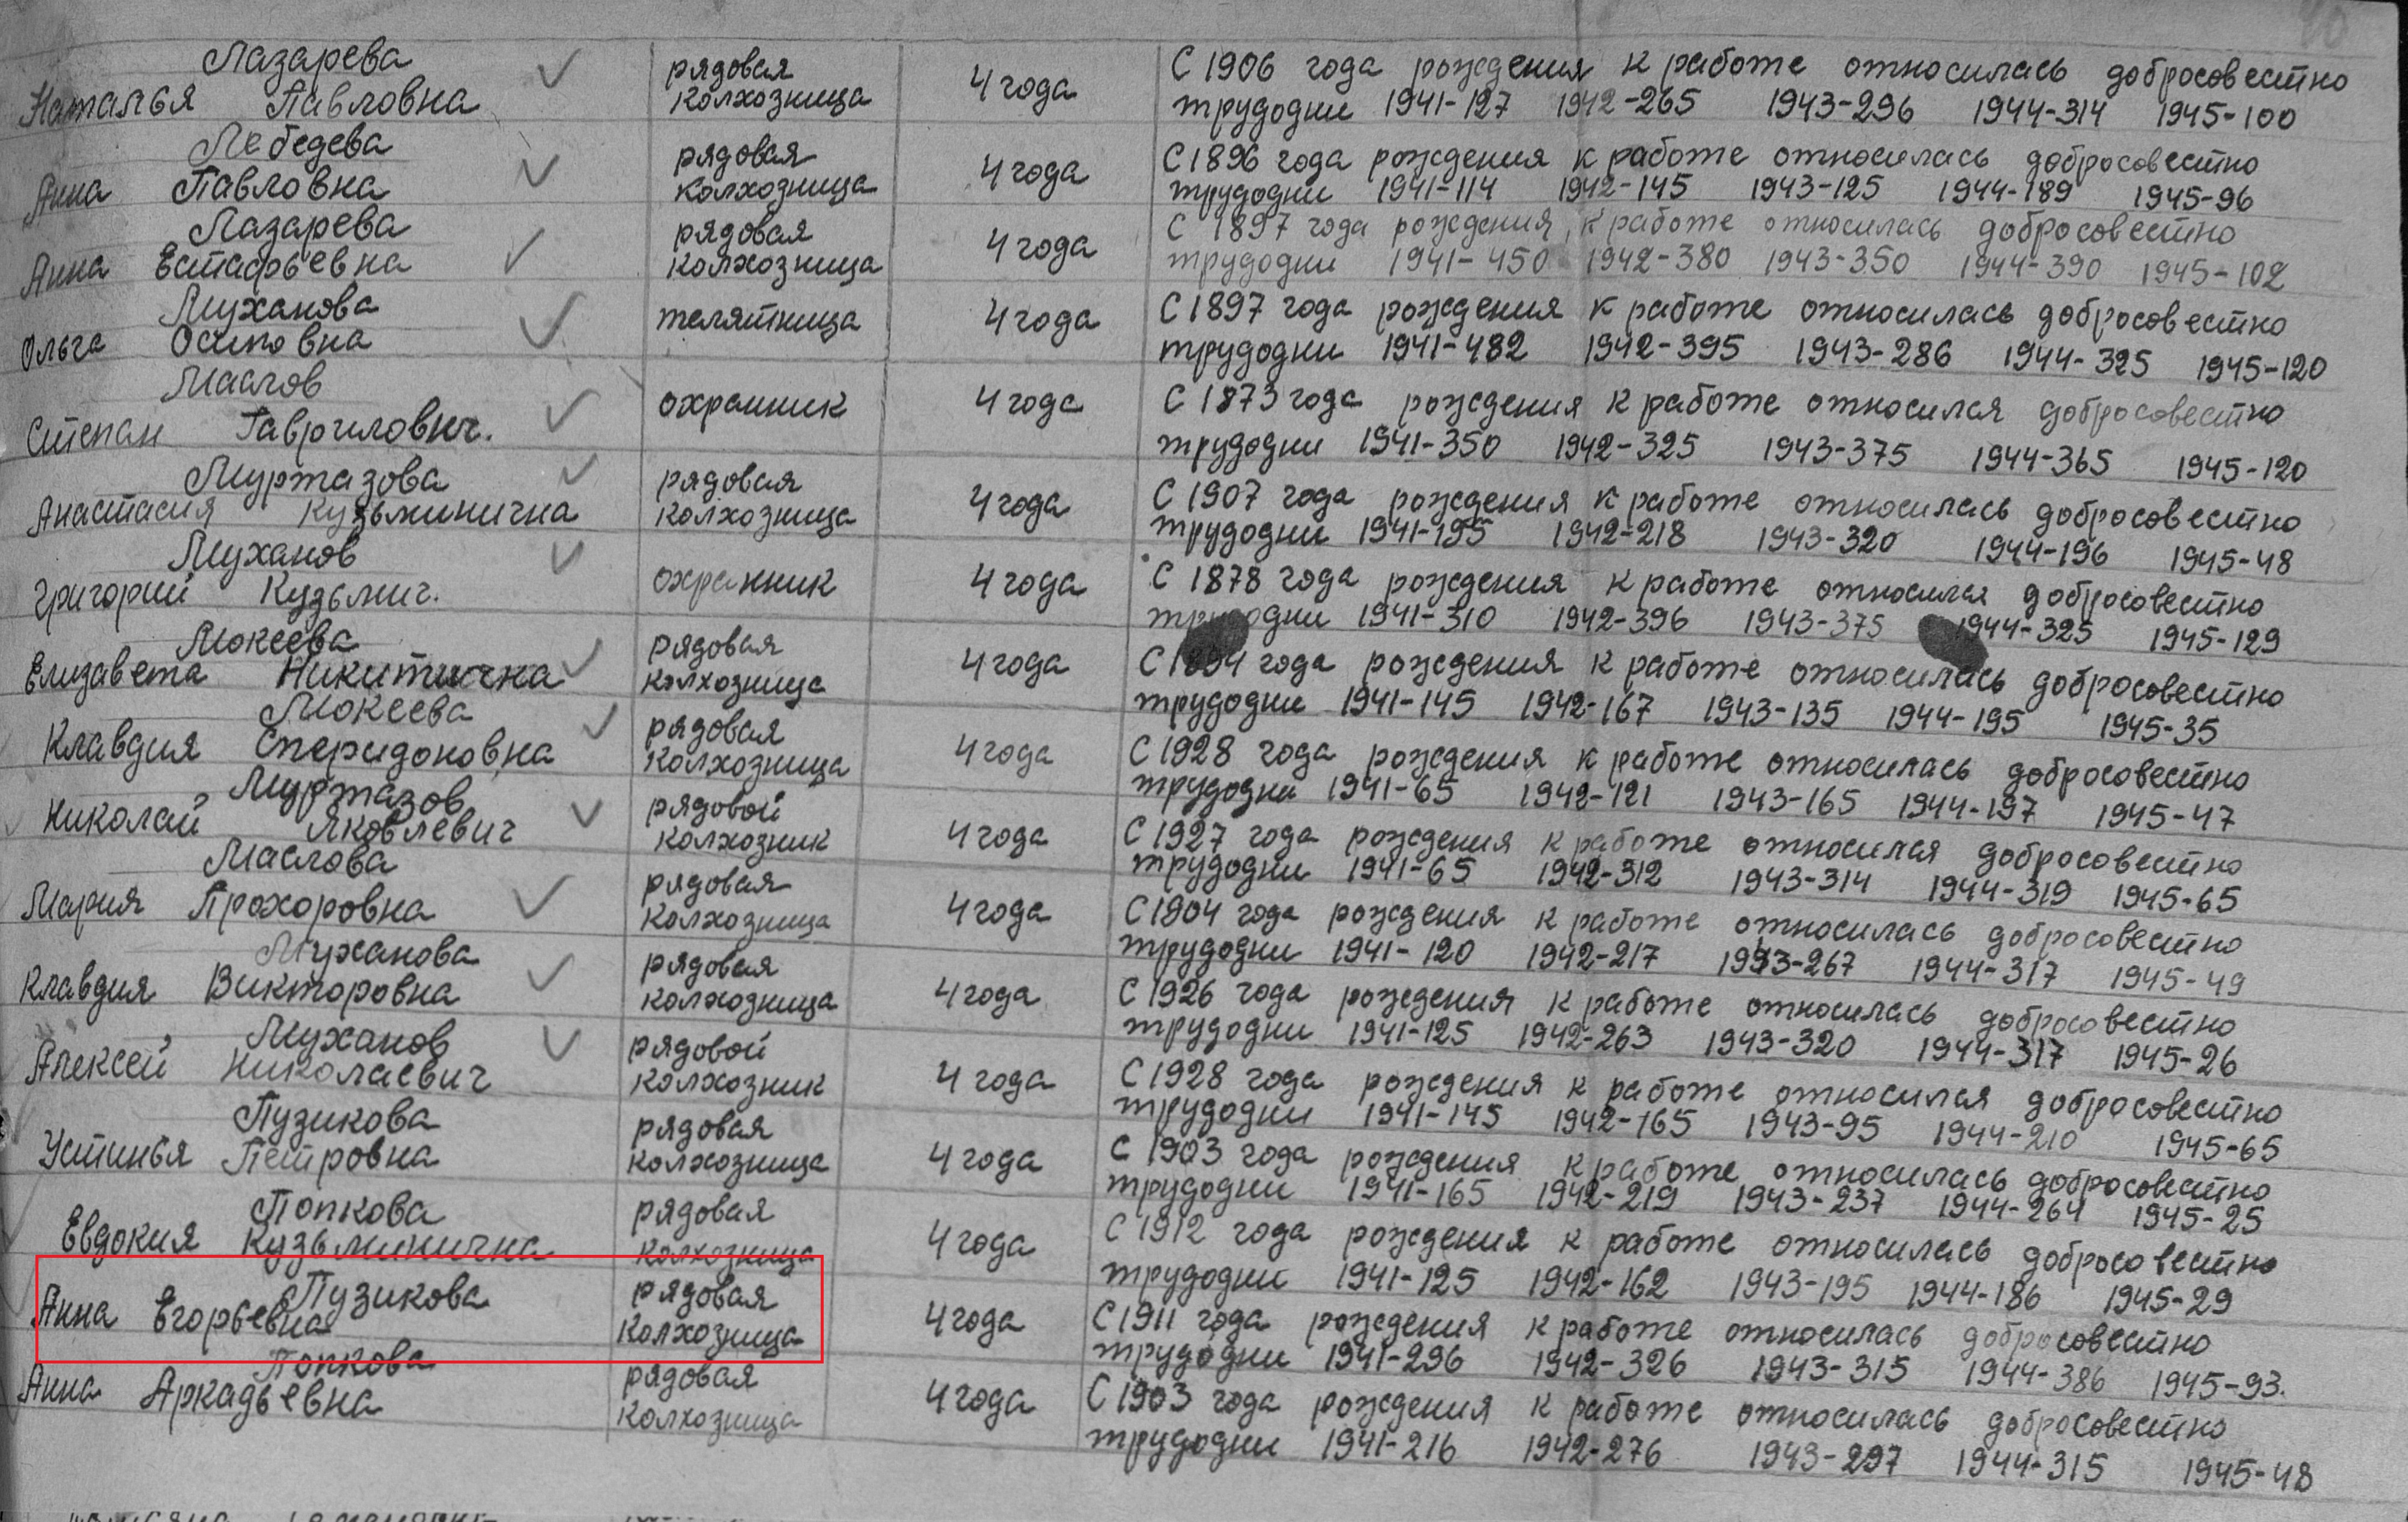 Лазарева рядовая 4 года С 1906 года рождения к работе относилась добросовестно
Наталья Павловна колхозница трудодни 1941-127 1942-265 1943-296 1944-314 1945-100
Лебедева рядовая 4 года С 1896 года рождения к работе относилась добросовестно
Анна Павловна колхозница трудодни 1941-114 1942-145 1943-125 1944-189 1945-96
Лазарева рядовая 4 года С 1897 года рождения, к работе относилась добросовестно
Анна Естафьевна колхозница трудодни 1941-450 1942-380 1943-350 1944-390 1945-102
Муханова телятница 4 года С 1897 года рождения к работе относилась добросовестно
Ольга Осиповна трудодни 1941-482 1942-395 1943-286 1944-325 1945-120
Маслов охранник 4 года С 1873 года рождения к работе относился добросовестно
Степан Гаврилович. трудодни 1941-350 1942-325 1943-375 1944-365 1945-120
Муртазова рядовая 4 года С 1907 года рождения к работе относилась добросовестно
Анастасия Кузьминична колхозница трудодни 1941-195 1942-218 1943-320 1944-196 1945-48
Муханов охранник 4 года С 1878 года рождения к работе относился добросовестно
Григорий Кузьмич. трудодни 1941-310 1942-396 1943-375 1944-325 1945-129
Мокеева рядовая 4 года С 1894 года рождения к работе относилась добросовестно
Елизавета Никитична колхозница трудодни 1941-145 1942-167 1943-135 1944-195 1945-35
Мокеева рядовая 4 года С 1928 года рождения к работе относилась добросовестно
Клавдия Сперидоновна колхозница трудодни 1941-65 1942-121 1943-165 1944-197 1945-47
Муртазов рядовой 4 года С 1927 года рождения к работе относился добросовестно
Николай Яковлевич колхозник трудодни 1941-65 1942-312 1943-314 1944-319 1945-65
Маслова рядовая 4 года С 1904 года рождения к работе относилась добросовестно
Мария Прохоровна колхозница трудодни 1941-120 1942-217 1943-267 1944-317 1945-49
Муханова рядовая 4 года С 1926 года рождения к работе относилась добросовестно
Клавдия Викторовна колхозница трудодни 1941-125 1942-263 1943-320 1944-317 1945-26
Муханов рядовой 4 года С 1928 года рождения к работе относился добросовестно
Алексей Николаевич колхозник трудодни 1941-145 1942-165 1943-95 1944-210 1945-65
Пузикова рядовая 4 года С 1903 года рождения к работе относилась добросовестно
Устинья Петровна колхозница трудодни 1941-165 1942-219 1943-237 1944-264 1945-25
Попкова рядовая 4 года С 1912 года рождения к работе относилась добросовестно
Евдокия Кузьминична колхозница трудодни 1941-125 1942-162 1943-195 1944-186 1945-29
Пузикова рядовая 4 года С 1911 года рождения к работе относилась добросовестно
Анна Егорьевна колхозница трудодни 1941-296 1942-326 1943-315 1944-386 1945-93.
Попкова рядовая 4 года С 1903 года рождения к работе относилась добросовестно
Анна Аркадьевна колхозница трудодни 1941-216 1942-276 1943-297 1944-315 1945-48